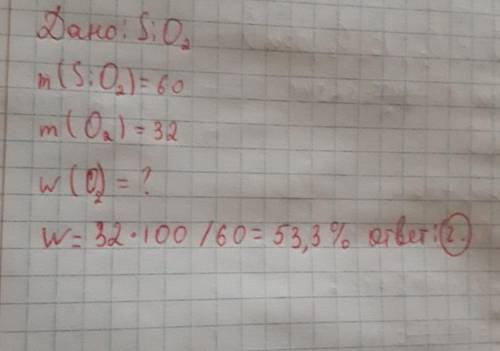 Дано: SiO₂
m(SiO₂)=60
m(O₂)=32
w(O₂)=?
W=32·100/60=53,3% ответ: 2.